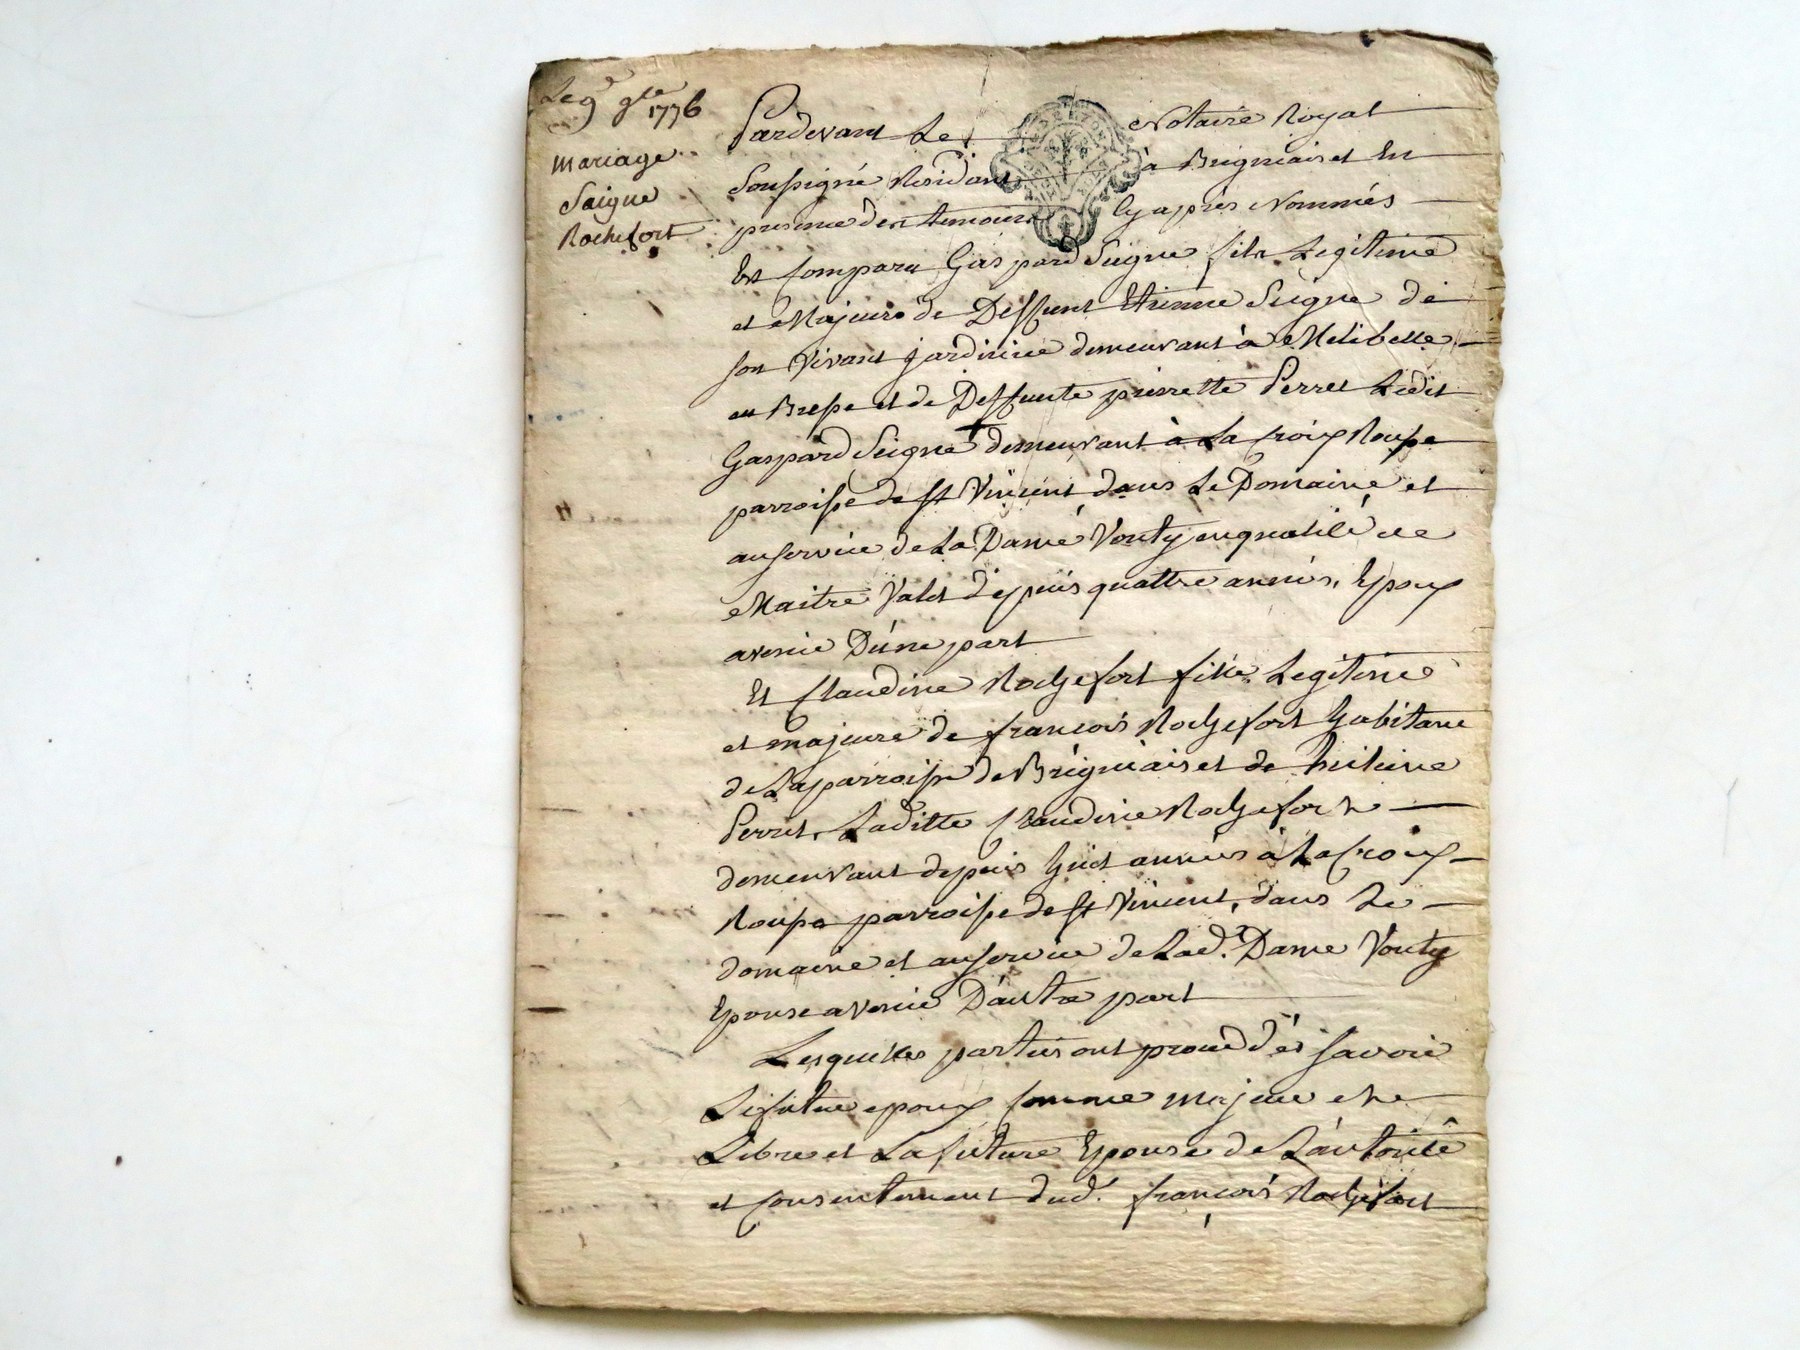 Le 9e 9bre 1776
Mariage
Saigne
Rochefort
Pardevant Le Notaire Royal
Soussigné Residant à Brignais et En
presence des temoins Cy après Nommés
Est Comparu Gaspard Seigne fils Legitime
et Majeur de Deffunt Etienne Seigne de
son Vivant jardinier demeurant à
en Bresse et de Deffunte pierrette Perret Ledit
Gaspard Seigne demeurant à La Croix Rousse
parroisse de St Vincent dans Le Domaine et
au service de La Dame Vouty en qualité de
Maitre Valet depuis quattre années, Epoux
avenir D'une part
Et Claudine Rochefort fille Legitime
et majeure de francois Rochefort habitant
de La parroisse de Brignais et de
Perret, Laditte Claudine Rochefort
demeurant depuis huit années à La Croix
Rousse parroisse de St Vincent, dans Le
domaine et au service de Lad. Dame Vouty
Epouse avenir D'autre part
Lesquelles parties ont procedé savoir
Le futur epoux Comme majeur et
Libre et La future Epouse de L'autorité
et Consentement dud. francois Rochefort